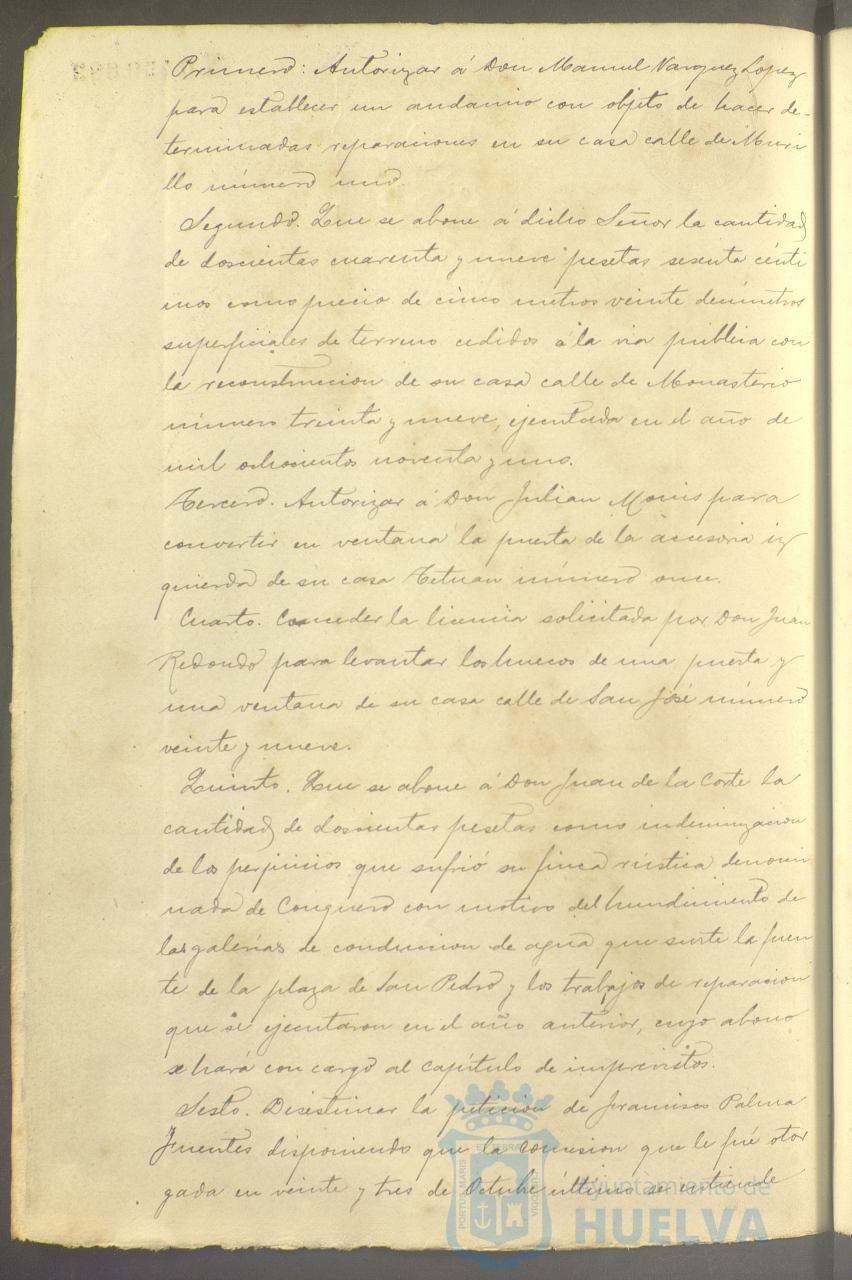 Primero: Autorizar á Don Manuel Vazquez Lopez
para establecer un andamio con objeto de hacer de-
terminadas reparaciones en su casa calle de Muri
llo número uno.
Segundo. Que se abone á dicho Señor la cantidad
de doscientas cuarenta y nueve pesetas sesenta cénti
mos como precio de cinco metros veinte decímetros
superficiales de terreno cedidos á la via pública con
la reconstruccion de su casa calle de Monasterio
número treinta y nueve, ejecutada en el año de
mil ochocientos noventa y uno.
Tercero. Autorizar á Don Julian Monis para
convertir en ventana la puerta de la accesoria iz
quierda de su casa Tetuan número once.
Cuarto. Conceder la licencia solicitada por Don Juan
Redondo para levantar los huecos de una puerta y
una ventana de su casa calle de San José número
veinte y nueve.
Quinto. Que se abone á Don Juan de la Corte la
cantidad de doscientas pesetas como indemnizacion
de los perjuicios que sufrió su finca rústica denomi
nada de Conquero con motivo del hundimiento de
las galerías de conduccion de agua que surte la fuen
te de la plaza de San Pedro y los trabajos de reparacion
que se ejecutaron en el año anterior, cuyo abono
se hará con cargo al capítulo de imprevistos.
Sesto. Desestimar la peticion de Francisco Palma
Fuentes disponiendo que la concesion que le fué otor
gada en veinte y tres de Octubre último se entiende
PORTUS MARIS ET TERRAE CUSTODIA
Ayuntamiento de
HUELVA